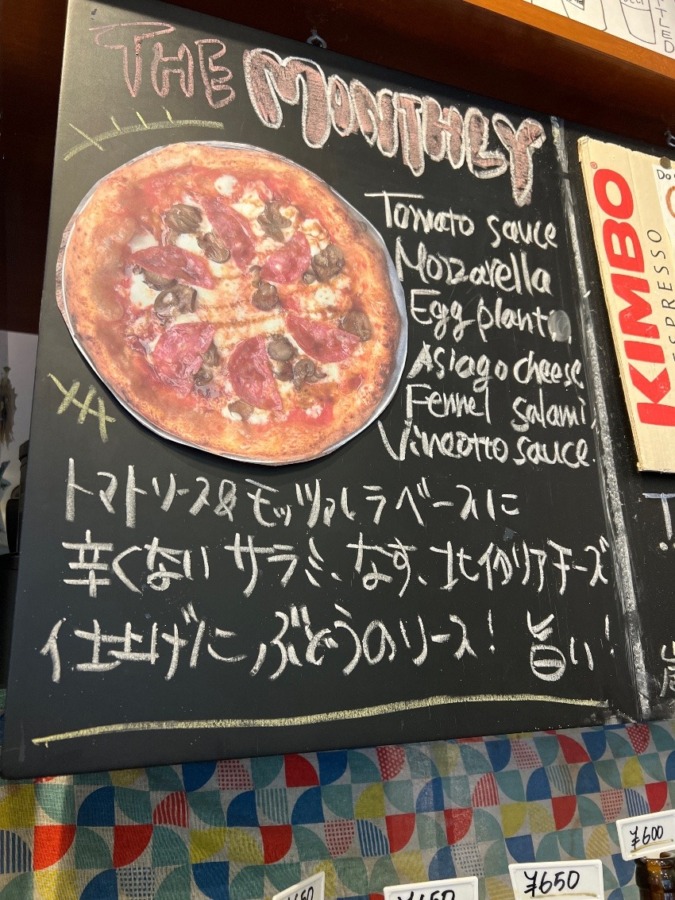 THE MONTHLY
Tomato sauce
Mozzarella
Egg plant,
Asiago cheese
Fennel salami,
Vincotto sauce.
トマトソース&モッツァレラベースに
辛くないサラミ、なす、北イタリアチーズ
仕上げにぶどうのソース! 旨い!
KIMBO
ESPRESSO
¥600
¥650
¥650